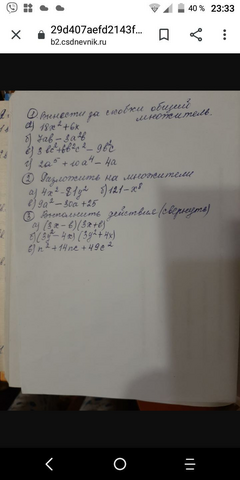 40 % 23:33
29d407aefd2143f...
b2.csdnevnik.ru
① Вынести за скобки общий
множитель.
а) 18x² + 6x
б) 7ab - 3a²b
в) 3bc² + 6b²c² - 9b²c
г) 2a⁵ + 10a⁴ - 4a
② Разложить на множители
а) 4x² - 81y² б) 121 - x⁸
в) 9a² - 30a + 25
③ Выполните действия (свернуть)
а) (3x - 6)(3x + 6)
б) (3y² - 4x)(3y² + 4x)
в) n² + 14nc + 49c²